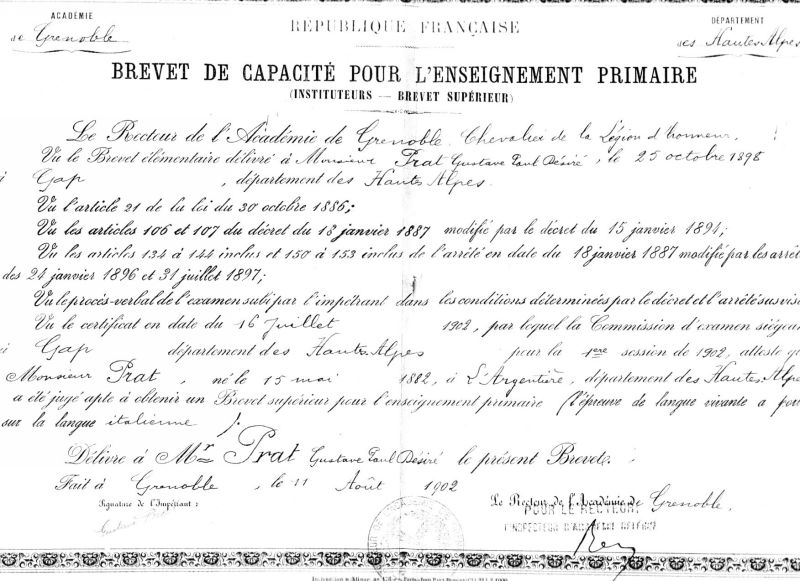 ACADÉMIE
de Grenoble
RÉPUBLIQUE FRANÇAISE
DÉPARTEMENT
des Hautes Alpes
BREVET DE CAPACITÉ POUR L'ENSEIGNEMENT PRIMAIRE
(INSTITUTEURS — BREVET SUPÉRIEUR)
Le Recteur de l'Académie de Grenoble, Chevalier de la Légion d'honneur,
Vu le Brevet élémentaire délivré à Monsieur Prat Gustave Paul Désiré, le 25 octobre 1898
Gap, département des Hautes Alpes.
Vu l'article 21 de la loi du 30 octobre 1886;
Vu les articles 106 et 107 du décret du 18 janvier 1887 modifié par le décret du 15 janvier 1894;
Vu les articles 134 à 144 inclus et 150 à 153 inclus de l'arrêté en date du 18 janvier 1887 modifié par les arrêt
des 24 janvier 1896 et 31 juillet 1897;
Vu le procès-verbal de l'examen subi par l'impétrant dans les conditions déterminées par le décret et l'arrêté susvisé
Vu le certificat en date du 16 juillet 1902, par lequel la Commission d'examen siégean
Gap département des Hautes Alpes pour la 1ere session de 1902, atteste qu
Monsieur Prat, né le 15 mai 1882, à L'Argentière, département des Hautes Alpe
a été jugé apte à obtenir un Brevet supérieur pour l'enseignement primaire (l'épreuve de langue vivante a por
sur la langue italienne).
Délivre à Mr Prat Gustave Paul Désiré le présent Brevet.
Fait à Grenoble, le 11 Août 1902
Signature de l'Impétrant :
Le Recteur de l'Académie de Grenoble,
POUR LE RECTEUR,
L'INSPECTEUR D'ACADÉMIE DÉLÉGUÉ